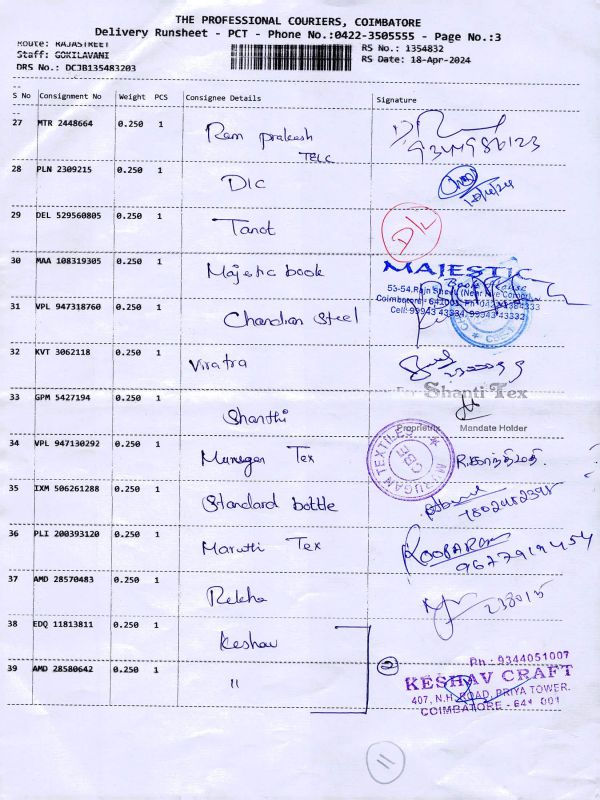 THE PROFESSIONAL COURIERS, COIMBATORE
Delivery Runsheet - PCT - Phone No.:0422-3505555 - Page No.:3
Route: RAJASTREET
Staff: GOKILAVANI
DRS No.: DCJB135483203
RS No.: 1354832
RS Date: 18-Apr-2024
S No Consignment No Weight PCS Consignee Details Signature
27 MTR 2448664 0.250 1 Ram prakash
TELC
28 PLN 2309215 0.250 1 DIC
29 DEL 529560805 0.250 1 Tanot D/L
30 MAA 108319305 0.250 1 Majestic book
MAJESTIC
Book House
53-54, Raja Street, (Near Five Corner)
Coimbatore - 641001. Ph: 0422
Cell: 99943 43334, 99943 43332
31 VPL 947318760 0.250 1 Chandian Steel
32 KVT 3062118 0.250 1 Viratra
For Shanti Tex
33 GPM 5427194 0.250 1 Shanthi
Proprietrix Mandate Holder
34 VPL 947130292 0.250 1 Murugan Tex
MURUGAN TEXTILES
CBE
35 IXM 506261288 0.250 1 Standard bottle
36 PLI 200393120 0.250 1 Marutti Tex
37 AMD 28570483 0.250 1 Rekha
38 EDQ 11813811 0.250 1 Keshav
39 AMD 28580642 0.250 1 "
2
Ph : 9344051007
KESHAV CRAFT
407, N.H. ROAD, PRIYA TOWER.
COIMBATORE - 641 001
11